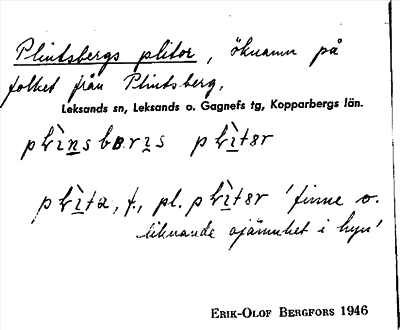 Plintsbergs plitor, öknamn på
folket från Plintsberg,
Leksands sn, Leksands o. Gagnefs tg, Kopparbergs län.
pl̀ı̠n̠sbɐrı̠s pl̀ı̠tər
pl̀ı̠ta, f., pl. pl̀ı̠tər 'finne o.
liknande ojämnhet i hyn'
ERIK-OLOF BERGFORS 1946